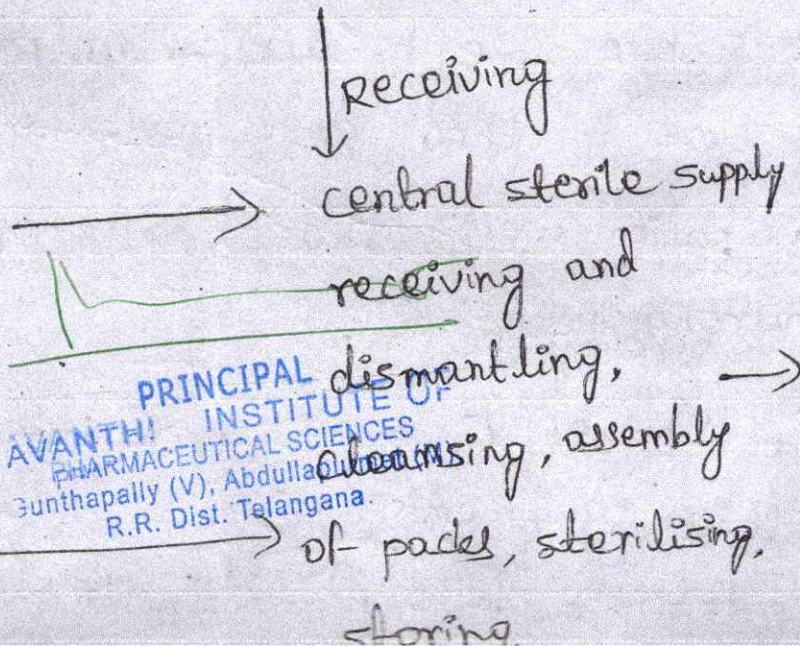 receiving
central sterile supply
receiving and
dismantling,
cleansing, assembly
of packs, sterilising,
storing
PRINCIPAL
AVANTHI INSTITUTE OF
PHARMACEUTICAL SCIENCES
Gunthapally (V),
R.R. Dist. Telangana.